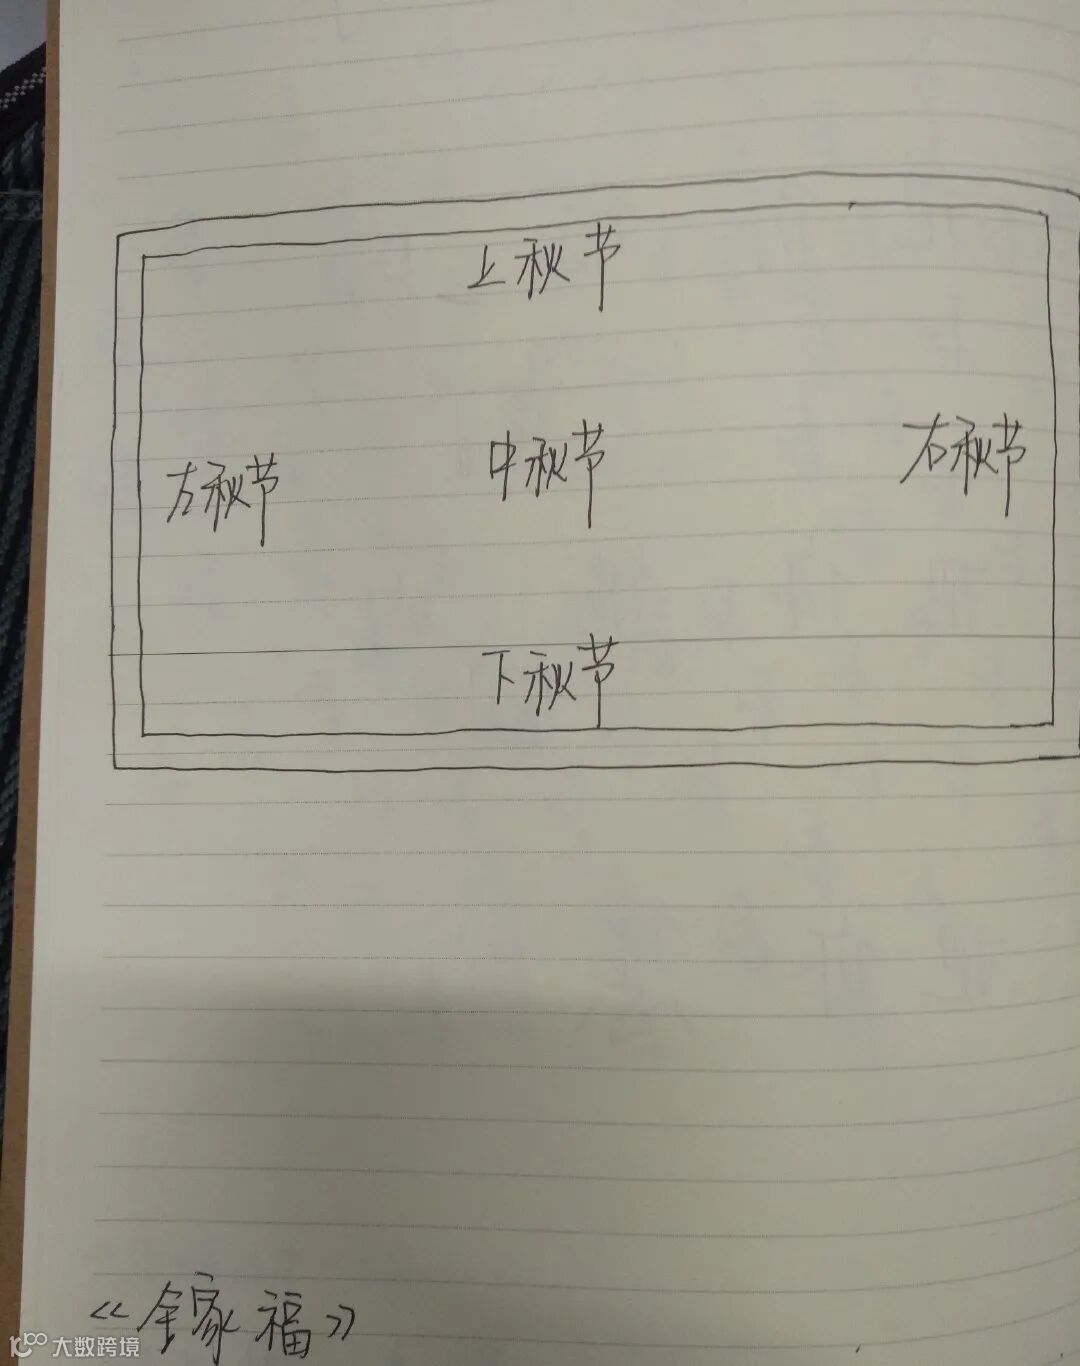 上秋节
左秋节 中秋节 右秋节
下秋节
《全家福》
大数跨境